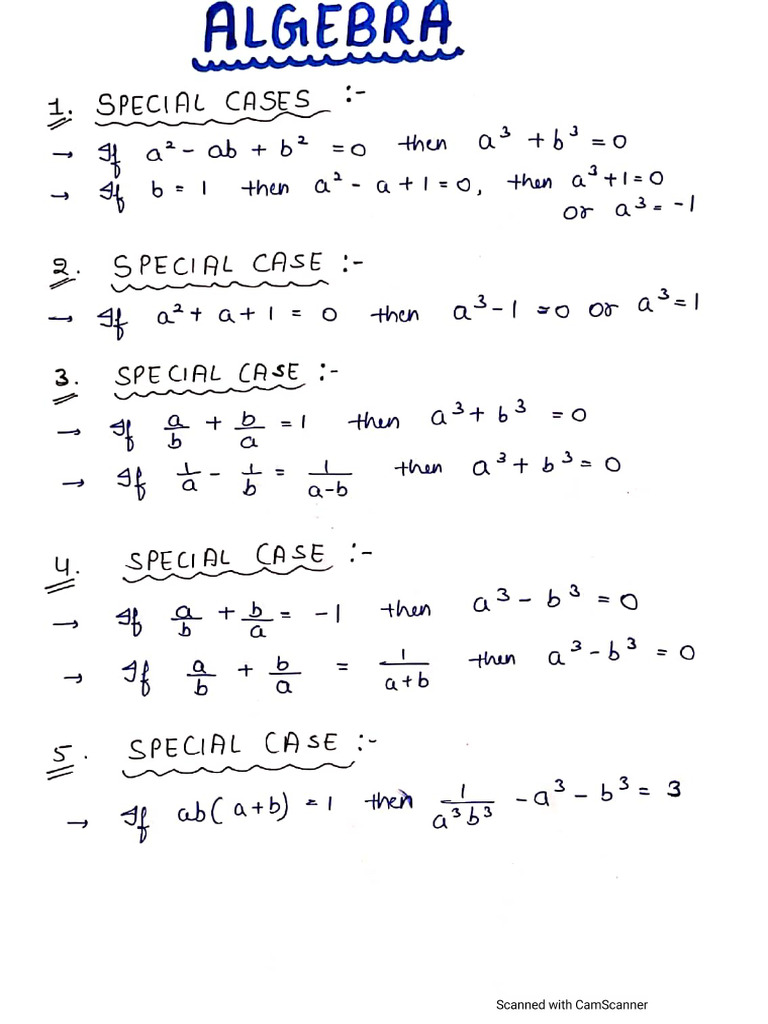 ALGEBRA
1. SPECIAL CASES :-
→ If a² - ab + b² = 0 then a³ + b³ = 0
→ If b = 1 then a² - a + 1 = 0, then a³ + 1 = 0
or a³ = -1
2. SPECIAL CASE :-
→ If a² + a + 1 = 0 then a³ - 1 = 0 or a³ = 1
3. SPECIAL CASE :-
→ If a/b + b/a = 1 then a³ + b³ = 0
→ If 1/a - 1/b = 1/(a-b) then a³ + b³ = 0
4. SPECIAL CASE :-
→ If a/b + b/a = -1 then a³ - b³ = 0
→ If a/b + b/a = 1/(a+b) then a³ - b³ = 0
5. SPECIAL CASE :-
→ If ab(a+b) = 1 then 1/(a³b³) - a³ - b³ = 3
Scanned with CamScanner